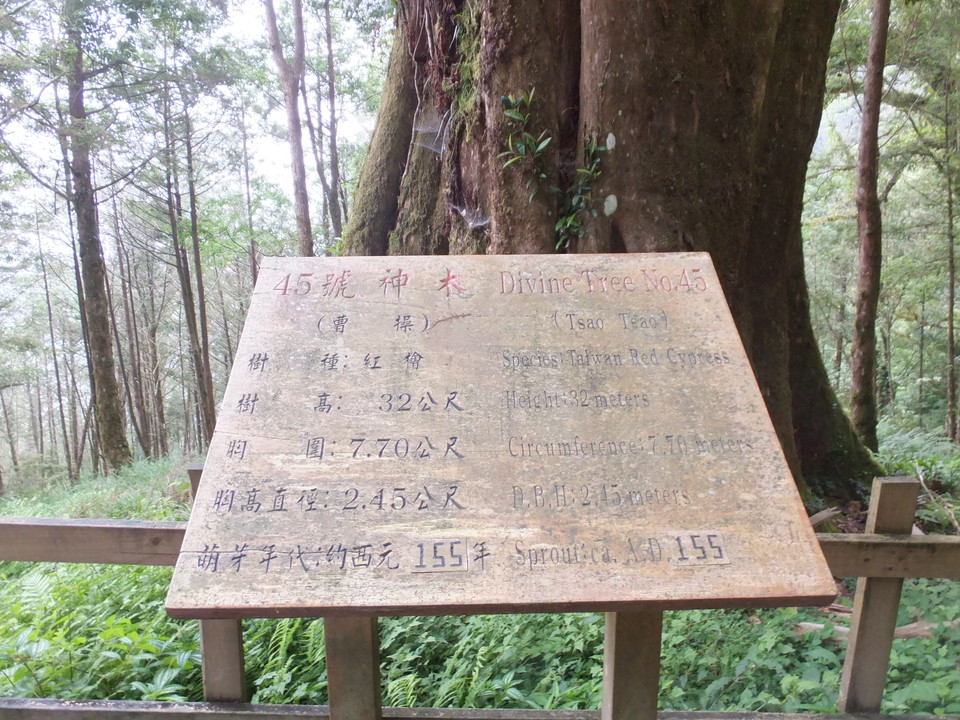 45號神木 Divine Tree No.45
(曹操) (Tsao Tsao)
樹種:紅檜 Species:Taiwan Red Cypress
樹高: 32公尺 Height:32 meters
胸圍:7.70公尺 Circumference:7.70 meters
胸高直徑:2.45公尺 D.B.H:2.45 meters
萌芽年代:約西元 155 年 Sprout:ca. A.D. 155